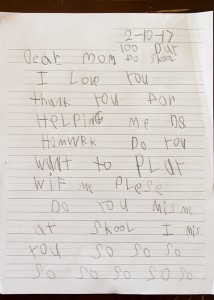 2-10-17
100 Day
Dear mom Do Skool
I Love you
thank you For
HELPING me Do
Homwrk Do you
want to PLay
wif me PLese
Do you mis me
at skool I mis
you so so so
so so so so so